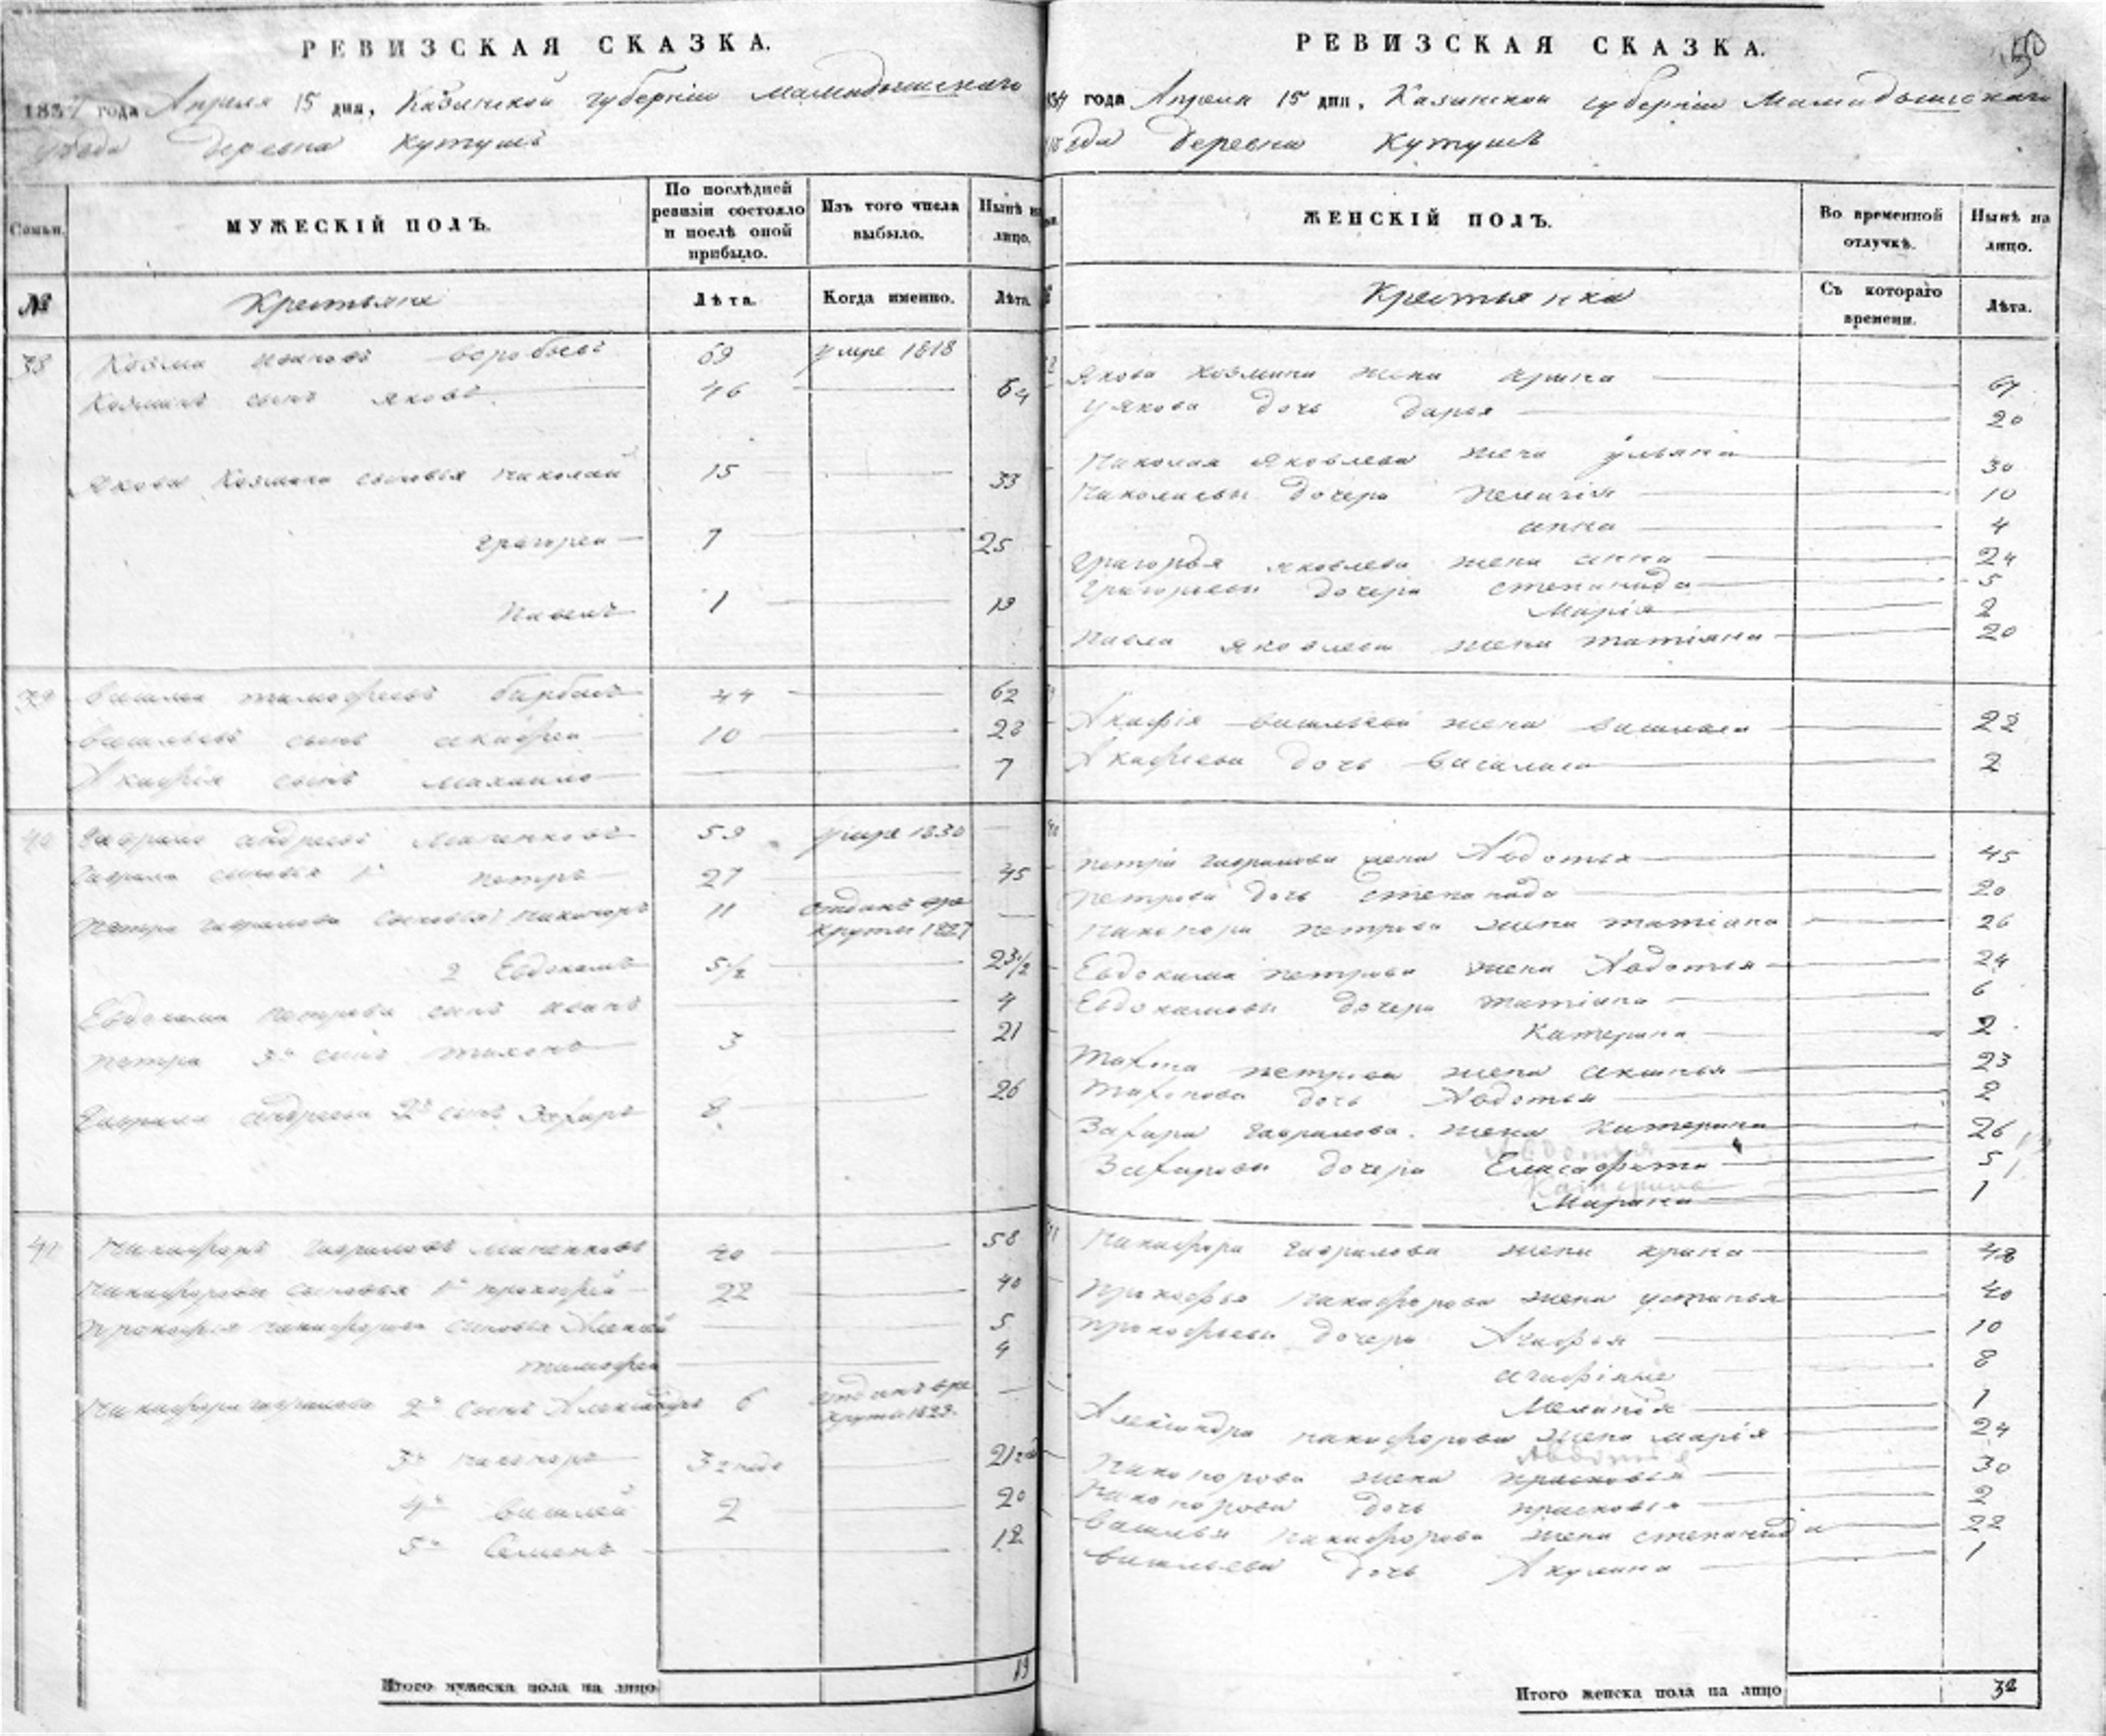 РЕВИЗСКАЯ СКАЗКА.
1834 года Апреля 15 дня, Казанской губернiи Мамадышскаго
уезда деревни Кутушъ
Семьи.
МУЖЕСКIЙ ПОЛЪ.
По послѣдней ревизiи состояло и послѣ оной прибыло.
Изъ того числа выбыло.
Нынѣ на лицо.
№
Крестьяне
Лѣта.
Когда именно.
Лѣта.
38 Козма Ивановъ Воробьевъ 69 умре 1818
Козминъ сынъ Яковъ 46 64
Якова Козмина сыновья Николай 15 33
Григорей 7 25
Павелъ 1 19
39 Василей Тимофеевъ 44 62
Васильевъ сынъ 10 28
сынъ Михайло 7
40 Гаврило Андреевъ 59 умре 1830
Гаврила сыновья 1й Петръ 27 45
Петра Гаврилова сыновья Никаноръ 11 отданъ въ рекруты 1827
2 Евдокимъ 5 1/2 23 1/2
Евдокима Петрова сынъ Иванъ 4
Петра 3й сынъ Тихонъ 3 21
Гаврила Андреева 2й сынъ Захаръ 8 26
41 Никифоръ Гавриловъ 40 58
Никифоровы сыновья 1й Прокофей 22 40
Прокофья Никифорова сыновья Алексей 5
Тимофей 4
Никифора Гаврилова 2й сынъ Александръ 6 отданъ въ рекруты
3й Никаноръ 3 21
4й Василей 2 20
5й Семенъ 12
Итого мужеска пола на лицо 19
РЕВИЗСКАЯ СКАЗКА.
50
1834 года Апреля 15 дня, Казанской губернiи Мамадышскаго
уезда деревни Кутушъ
ЖЕНСКIЙ ПОЛЪ.
Во временной отлучкѣ.
Нынѣ на лицо.
Крестьянки
Съ котораго времени.
Лѣта.
Якова Козмина жена Арина 67
Якова дочь Дарья 20
Николая Яковлева жена Ульяна 30
Николаевы дочери 10
Анна 4
Григорья Яковлева жена Анна 24
Григорьевы дочери Степанида 5
Марiя 2
Павла Яковлева жена Татiяна 20
Васильева жена 22
дочь 2
Петра Гаврилова жена Авдотья 45
Петрова дочь Степанида 20
Никанора Петрова жена Татiана 26
Евдокима Петрова жена Авдотья 24
Евдокимовы дочери Татiана 6
Катерина 2
Тихона Петрова жена Аксинья 23
Тихонова дочь Авдотья 2
Захара Гаврилова жена Катерина 26
Захаровы дочери Елисафета 5
Марина 1
Никифора Гаврилова жена Ирина 48
Прокофья Никифорова жена Устинья 40
Прокофьевы дочери Агафья 10
8
1
Александра Никифорова жена Марiя 24
Никонорова жена Прасковья 30
Никонорова дочь Прасковья 2
Василья Никифорова жена Степанида 22
Васильева дочь Акулина 1
Итого женска пола на лицо 32